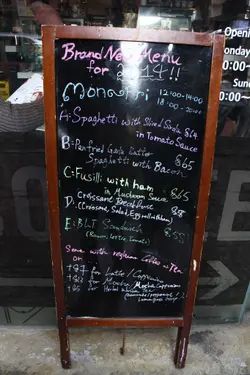 Brand New Menu
for 2014!!
Mon-Fri 12:00-14:00
18:00-20:00
A: Spaghetti with Sliced $64
in Tomato Sauce
B: Panfried Garlic Butter
Spaghetti with Bacon $65
C: Fusilli with ham
in Mushroom Sauce $65
D: Croissant Breakfast
(Croissant, Salad, Egg with ham)
E: BLT Sandwich $55
(Bacon, Lettuce, Tomato)
Serve with regular Coffee or Tea
or
for Latte/Cappuccino
for Mocha/
for Herbal
Open
onday
0:00-
0:00-